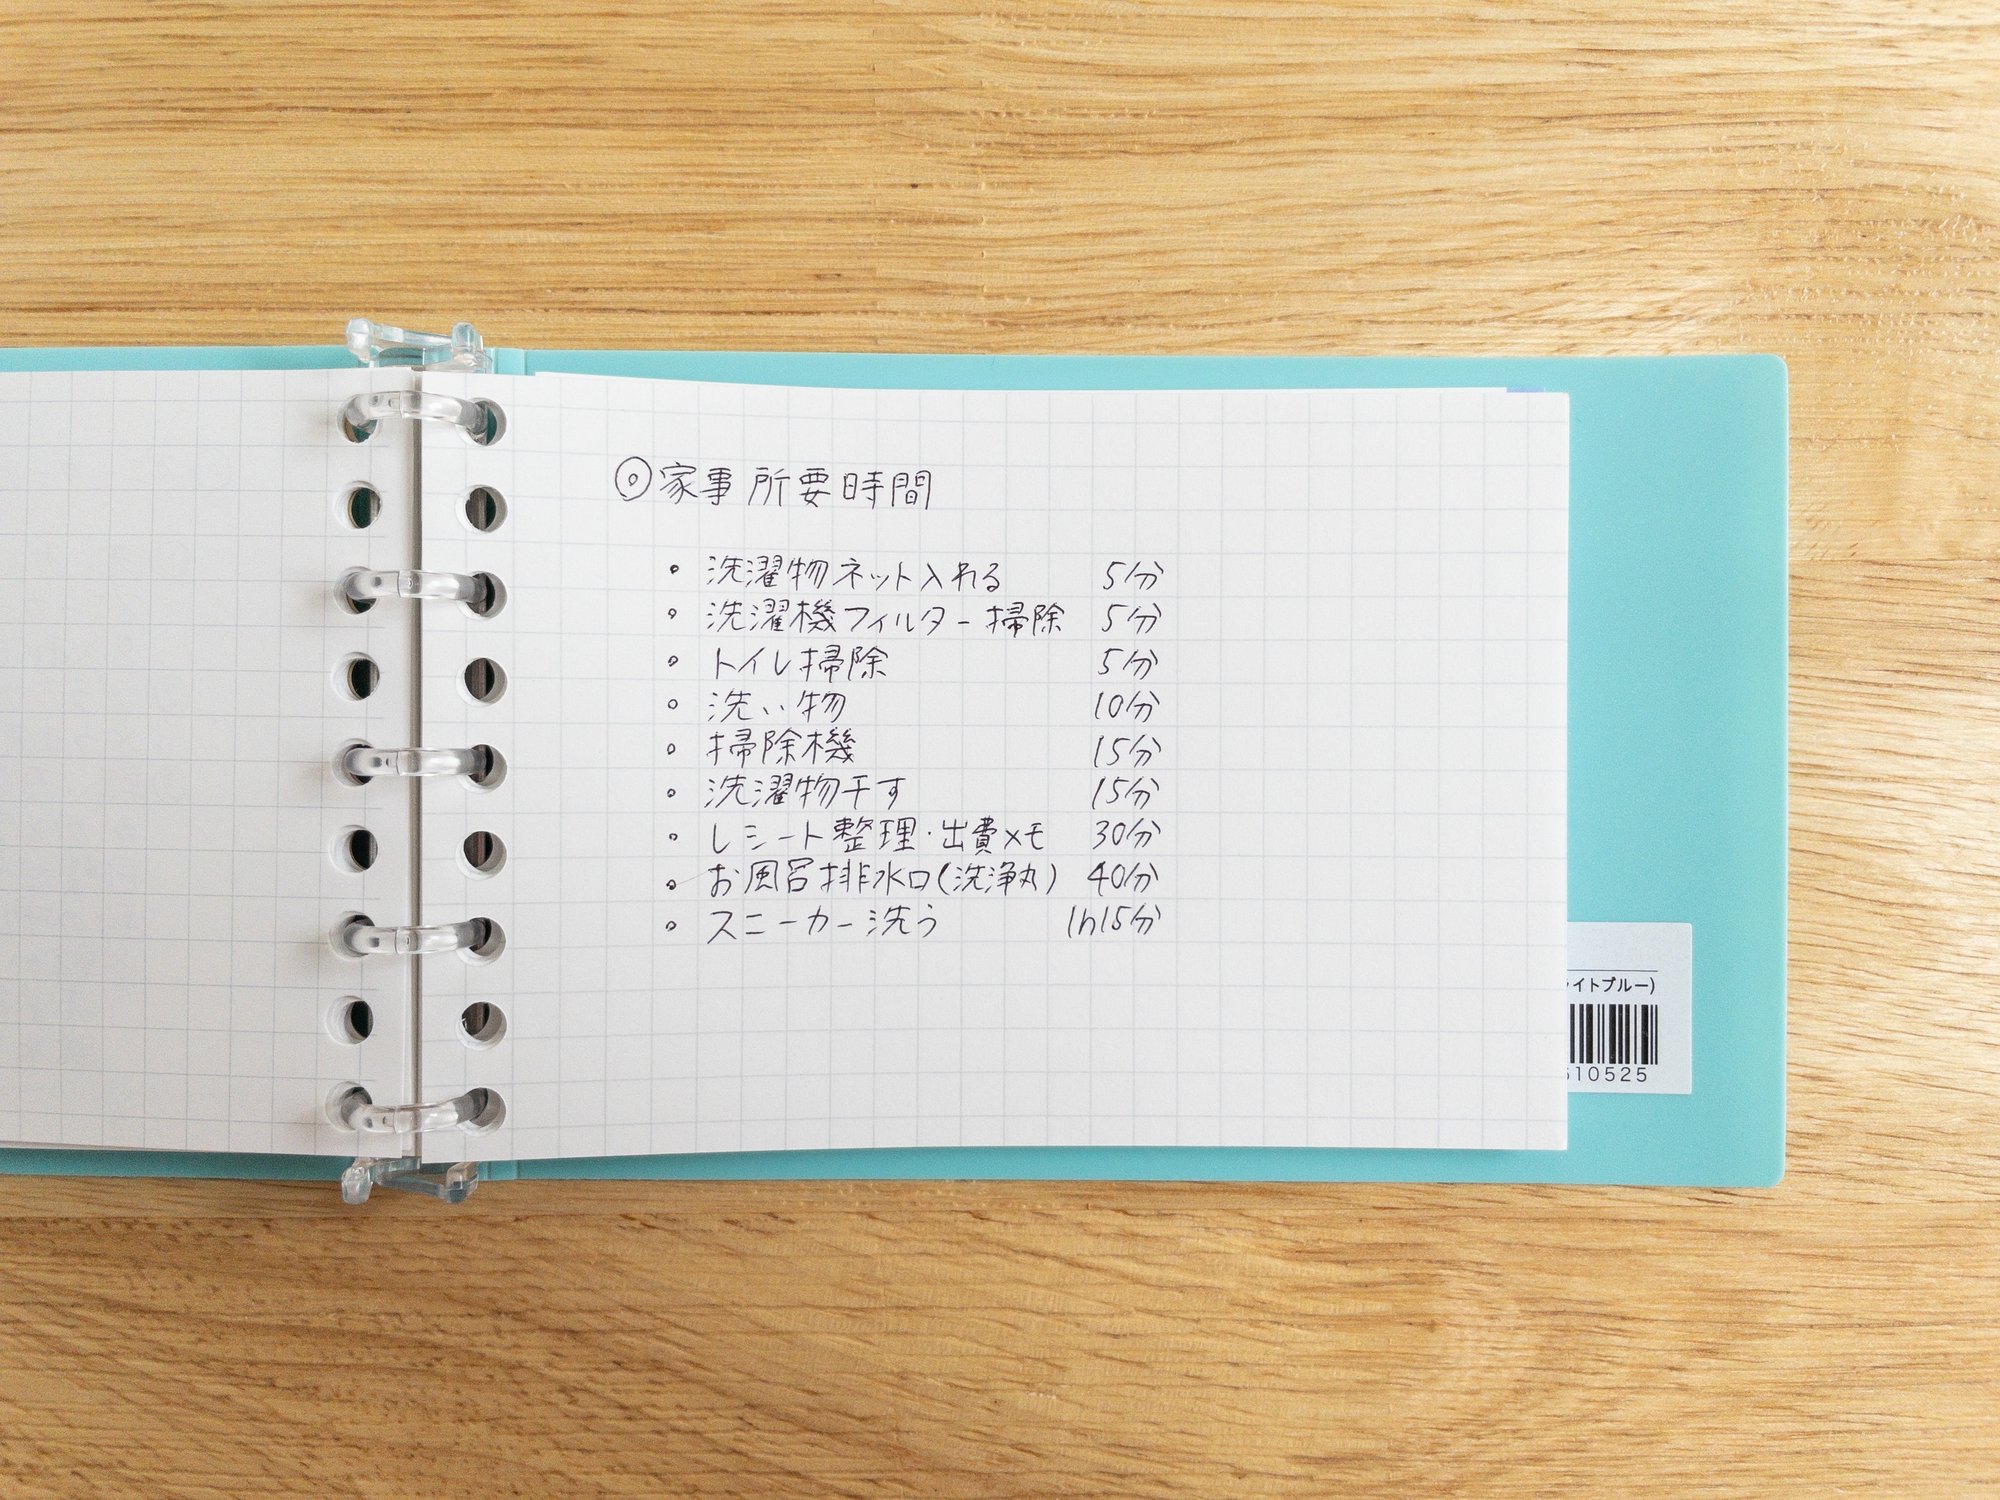 ◎家事所要時間
・洗濯物ネット入れる 5分
・洗濯機フィルター掃除 5分
・トイレ掃除 5分
・洗い物 10分
・掃除機 15分
・洗濯物干す 15分
・レシート整理・出費メモ 30分
・お風呂排水口(洗浄丸) 40分
・スニーカー洗う 1h15分
イトブルー)
10525